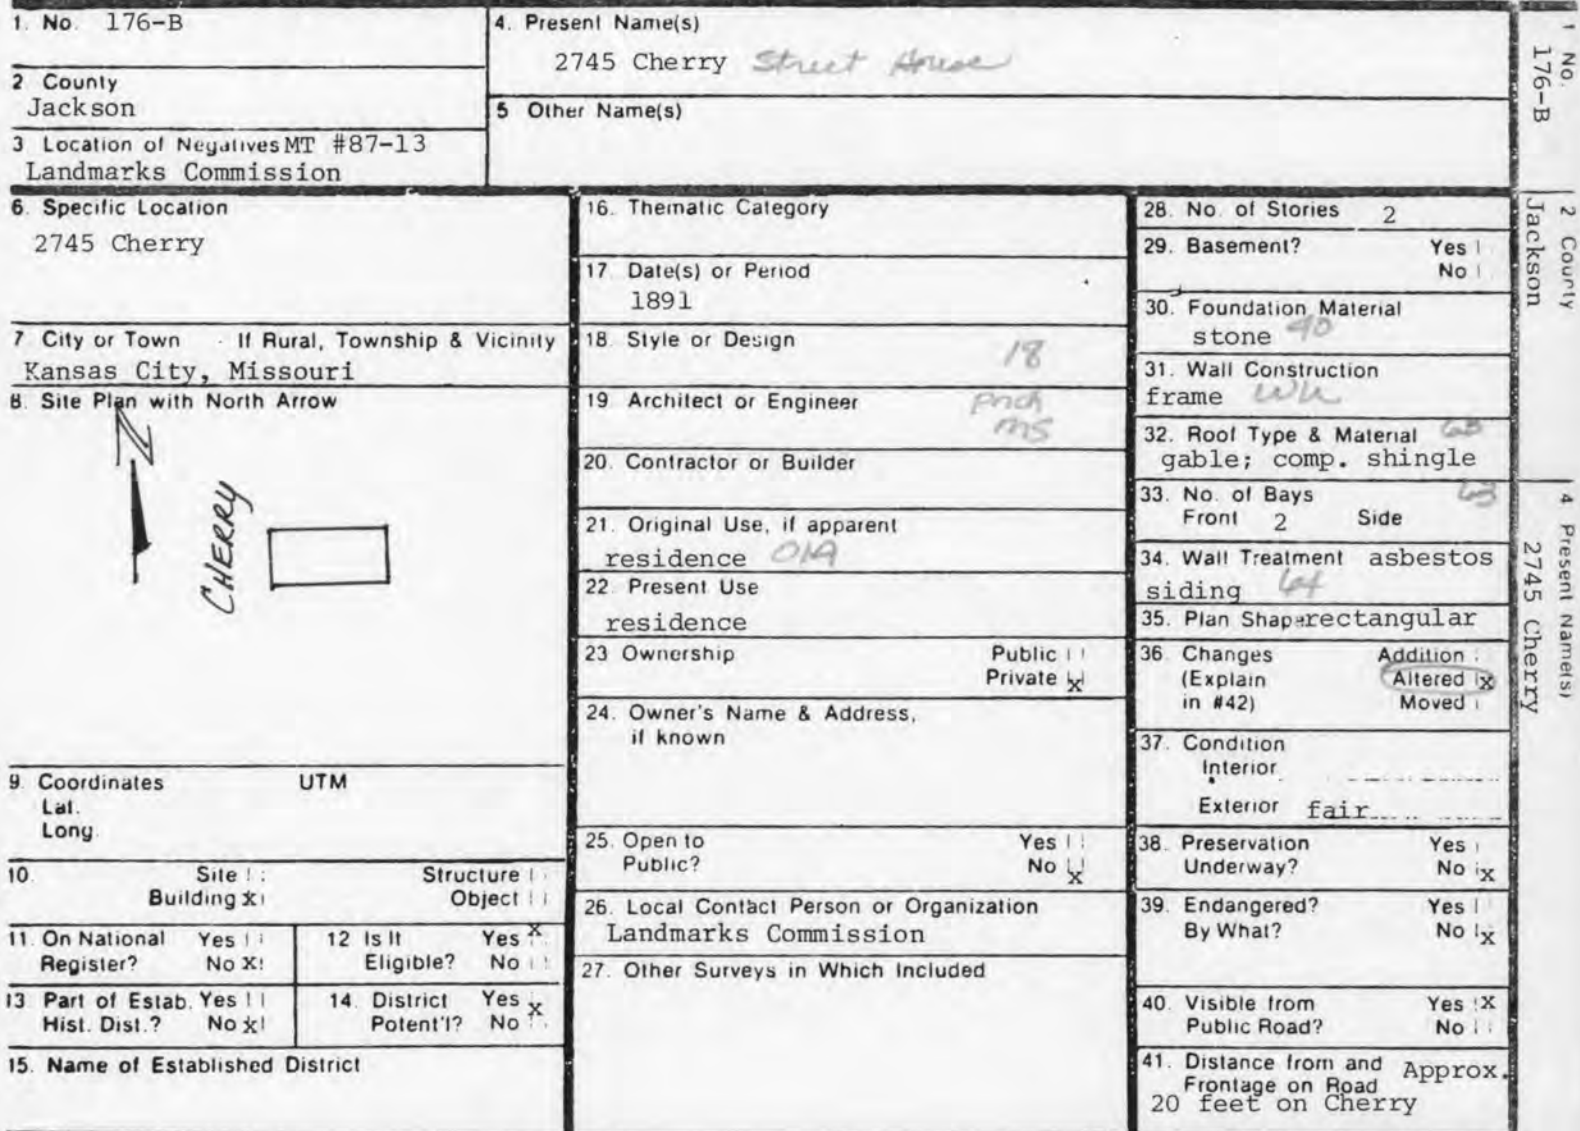 1. No. 176-B
2 County
Jackson
3 Location of Negatives MT #87-13
Landmarks Commission
4. Present Name(s)
2745 Cherry Street House
5 Other Name(s)
6. Specific Location
2745 Cherry
7 City or Town If Rural, Township & Vicinity
Kansas City, Missouri
8. Site Plan with North Arrow
N
CHERRY
9. Coordinates UTM
Lat.
Long.
10. Site Structure
Building x Object
11. On National Yes
Register? No X
12 Is It Yes X
Eligible? No
13 Part of Estab. Yes
Hist. Dist.? No x
14. District Yes X
Potent'l? No
15. Name of Established District
16. Thematic Category
17. Date(s) or Period
1891
18. Style or Design 18
19. Architect or Engineer
MS
20. Contractor or Builder
21. Original Use, if apparent
residence 01A
22. Present Use
residence
23 Ownership Public
Private x
24. Owner's Name & Address,
if known
25. Open to Yes
Public? No x
26. Local Contact Person or Organization
Landmarks Commission
27. Other Surveys in Which Included
28. No. of Stories 2
29. Basement? Yes
No
30. Foundation Material
stone 40
31. Wall Construction
frame
32. Roof Type & Material
gable; comp. shingle
33. No. of Bays 63
Front 2 Side
34. Wall Treatment asbestos
siding 64
35. Plan Shape rectangular
36. Changes Addition
(Explain Altered x
in #42) Moved
37. Condition
Interior
Exterior fair
38. Preservation Yes
Underway? No x
39. Endangered? Yes
By What? No x
40. Visible from Yes X
Public Road? No
41. Distance from and Approx.
Frontage on Road
20 feet on Cherry
1 No.
176-B
2 County
Jackson
4 Present Name(s)
2745 Cherry